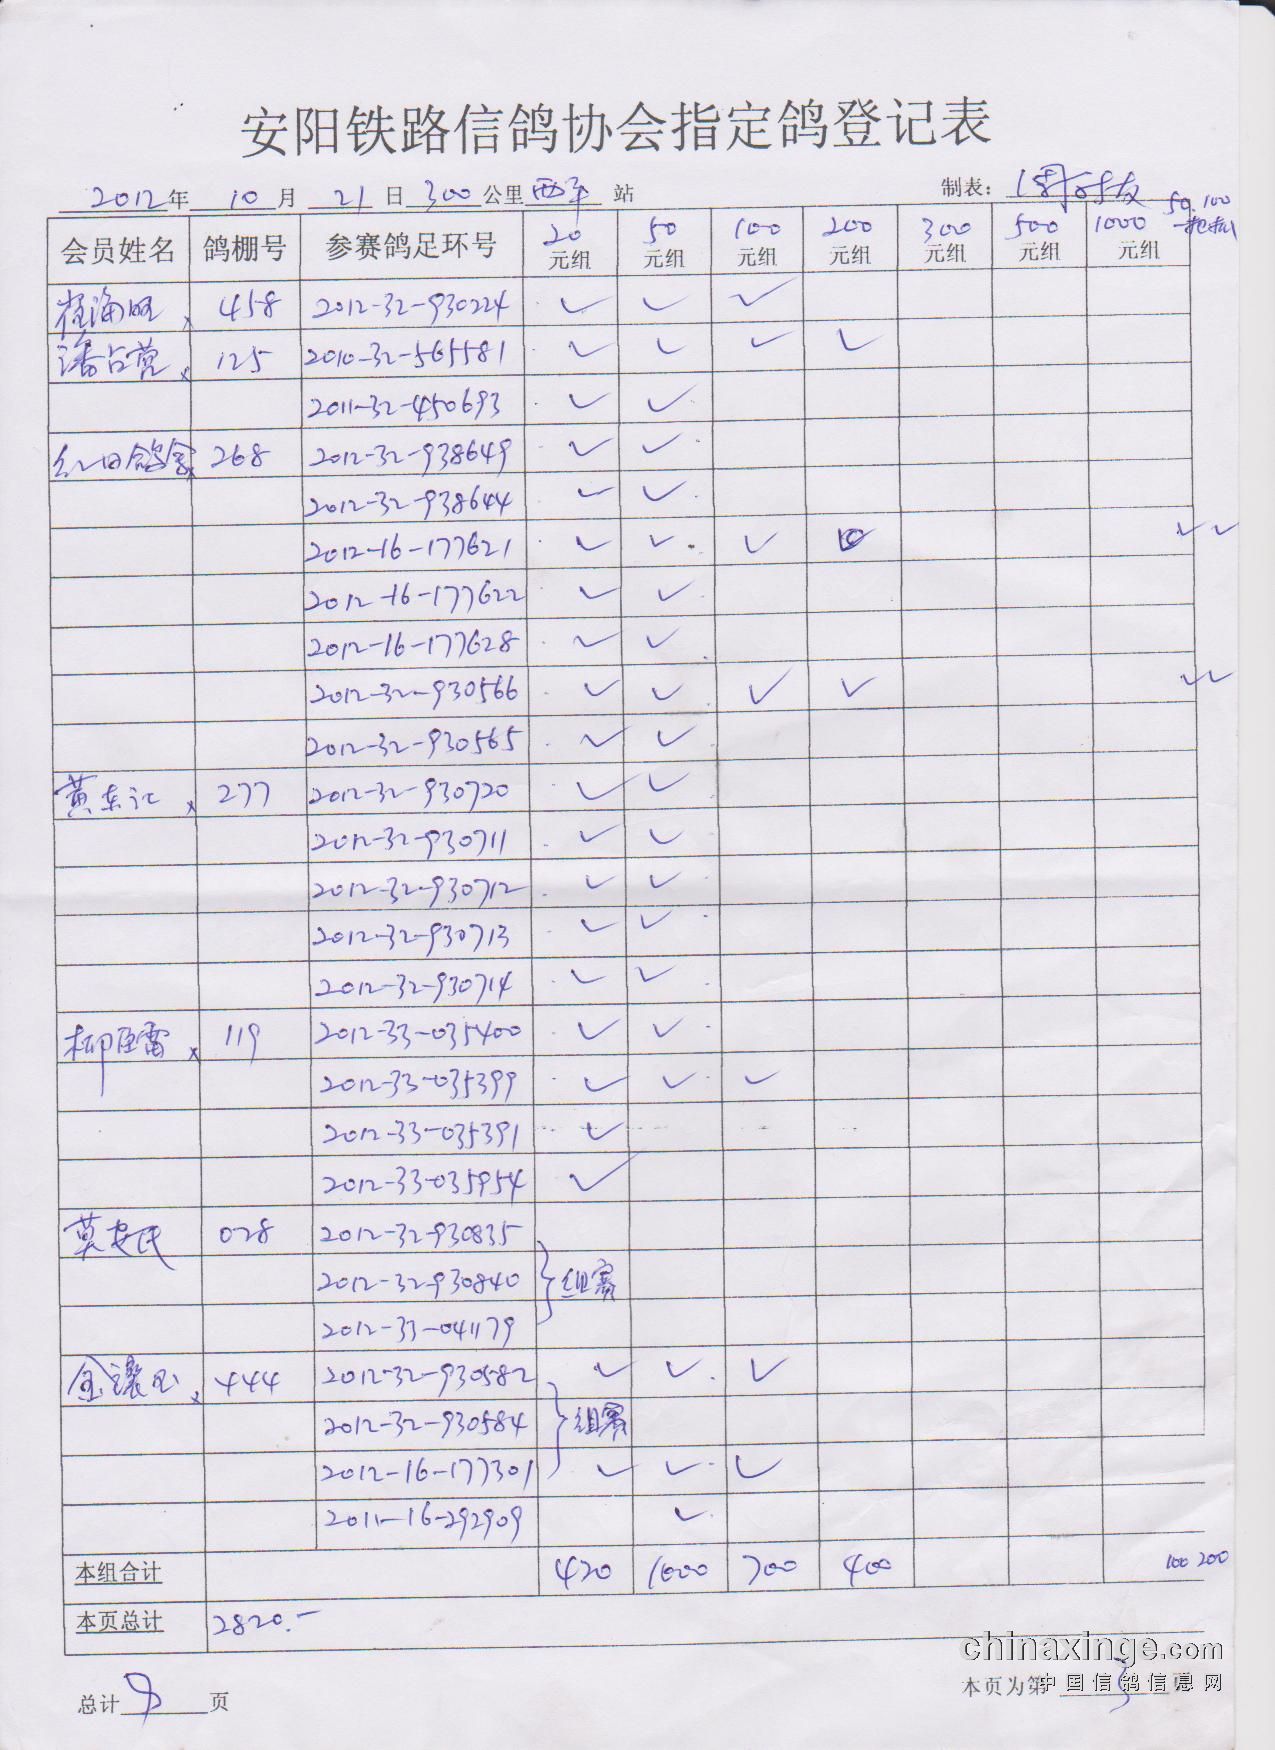 安阳铁路信鸽协会指定鸽登记表
2012年 10月 21日 300公里西平站 制表:
会员姓名 鸽棚号 参赛鸽足环号 20元组 50元组 100元组 200元组 300元组 500元组 1000元组 50 100
崔海旺 458 2012-32-930224 ✓ ✓ ✓
潘占营 125 2010-32-565581 ✓ ✓ ✓ ✓
2011-32-450693 ✓ ✓
红日鸽舍 268 2012-32-938649 ✓ ✓
2012-32-938644 ✓ ✓
2012-16-177621 ✓ ✓ ✓ ✓ ✓
2012-16-177622 ✓ ✓
2012-16-177628 ✓ ✓
2012-32-930566 ✓ ✓ ✓ ✓ ✓ ✓
2012-32-930565 ✓ ✓
黄东江 277 2012-32-930720 ✓ ✓
2012-32-930711 ✓ ✓
2012-32-930712 ✓ ✓
2012-32-930713 ✓ ✓
2012-32-930714 ✓ ✓
柳臣雷 119 2012-33-035400 ✓ ✓
2012-33-035399 ✓ ✓ ✓
2012-33-035391 ✓
2012-33-035954 ✓
莫安民 028 2012-32-930835
2012-32-930840 组赛
2012-33-041179
444 2012-32-930582 ✓ ✓ ✓
2012-32-930584 组赛
2012-16-177301 ✓ ✓ ✓
2011-16-292909 ✓
本组合计 420 1000 700 400 100 200
本页总计 2820.-
chinaxinge.com
总计 9 页 本页为第 3 页
中国信鸽信息网